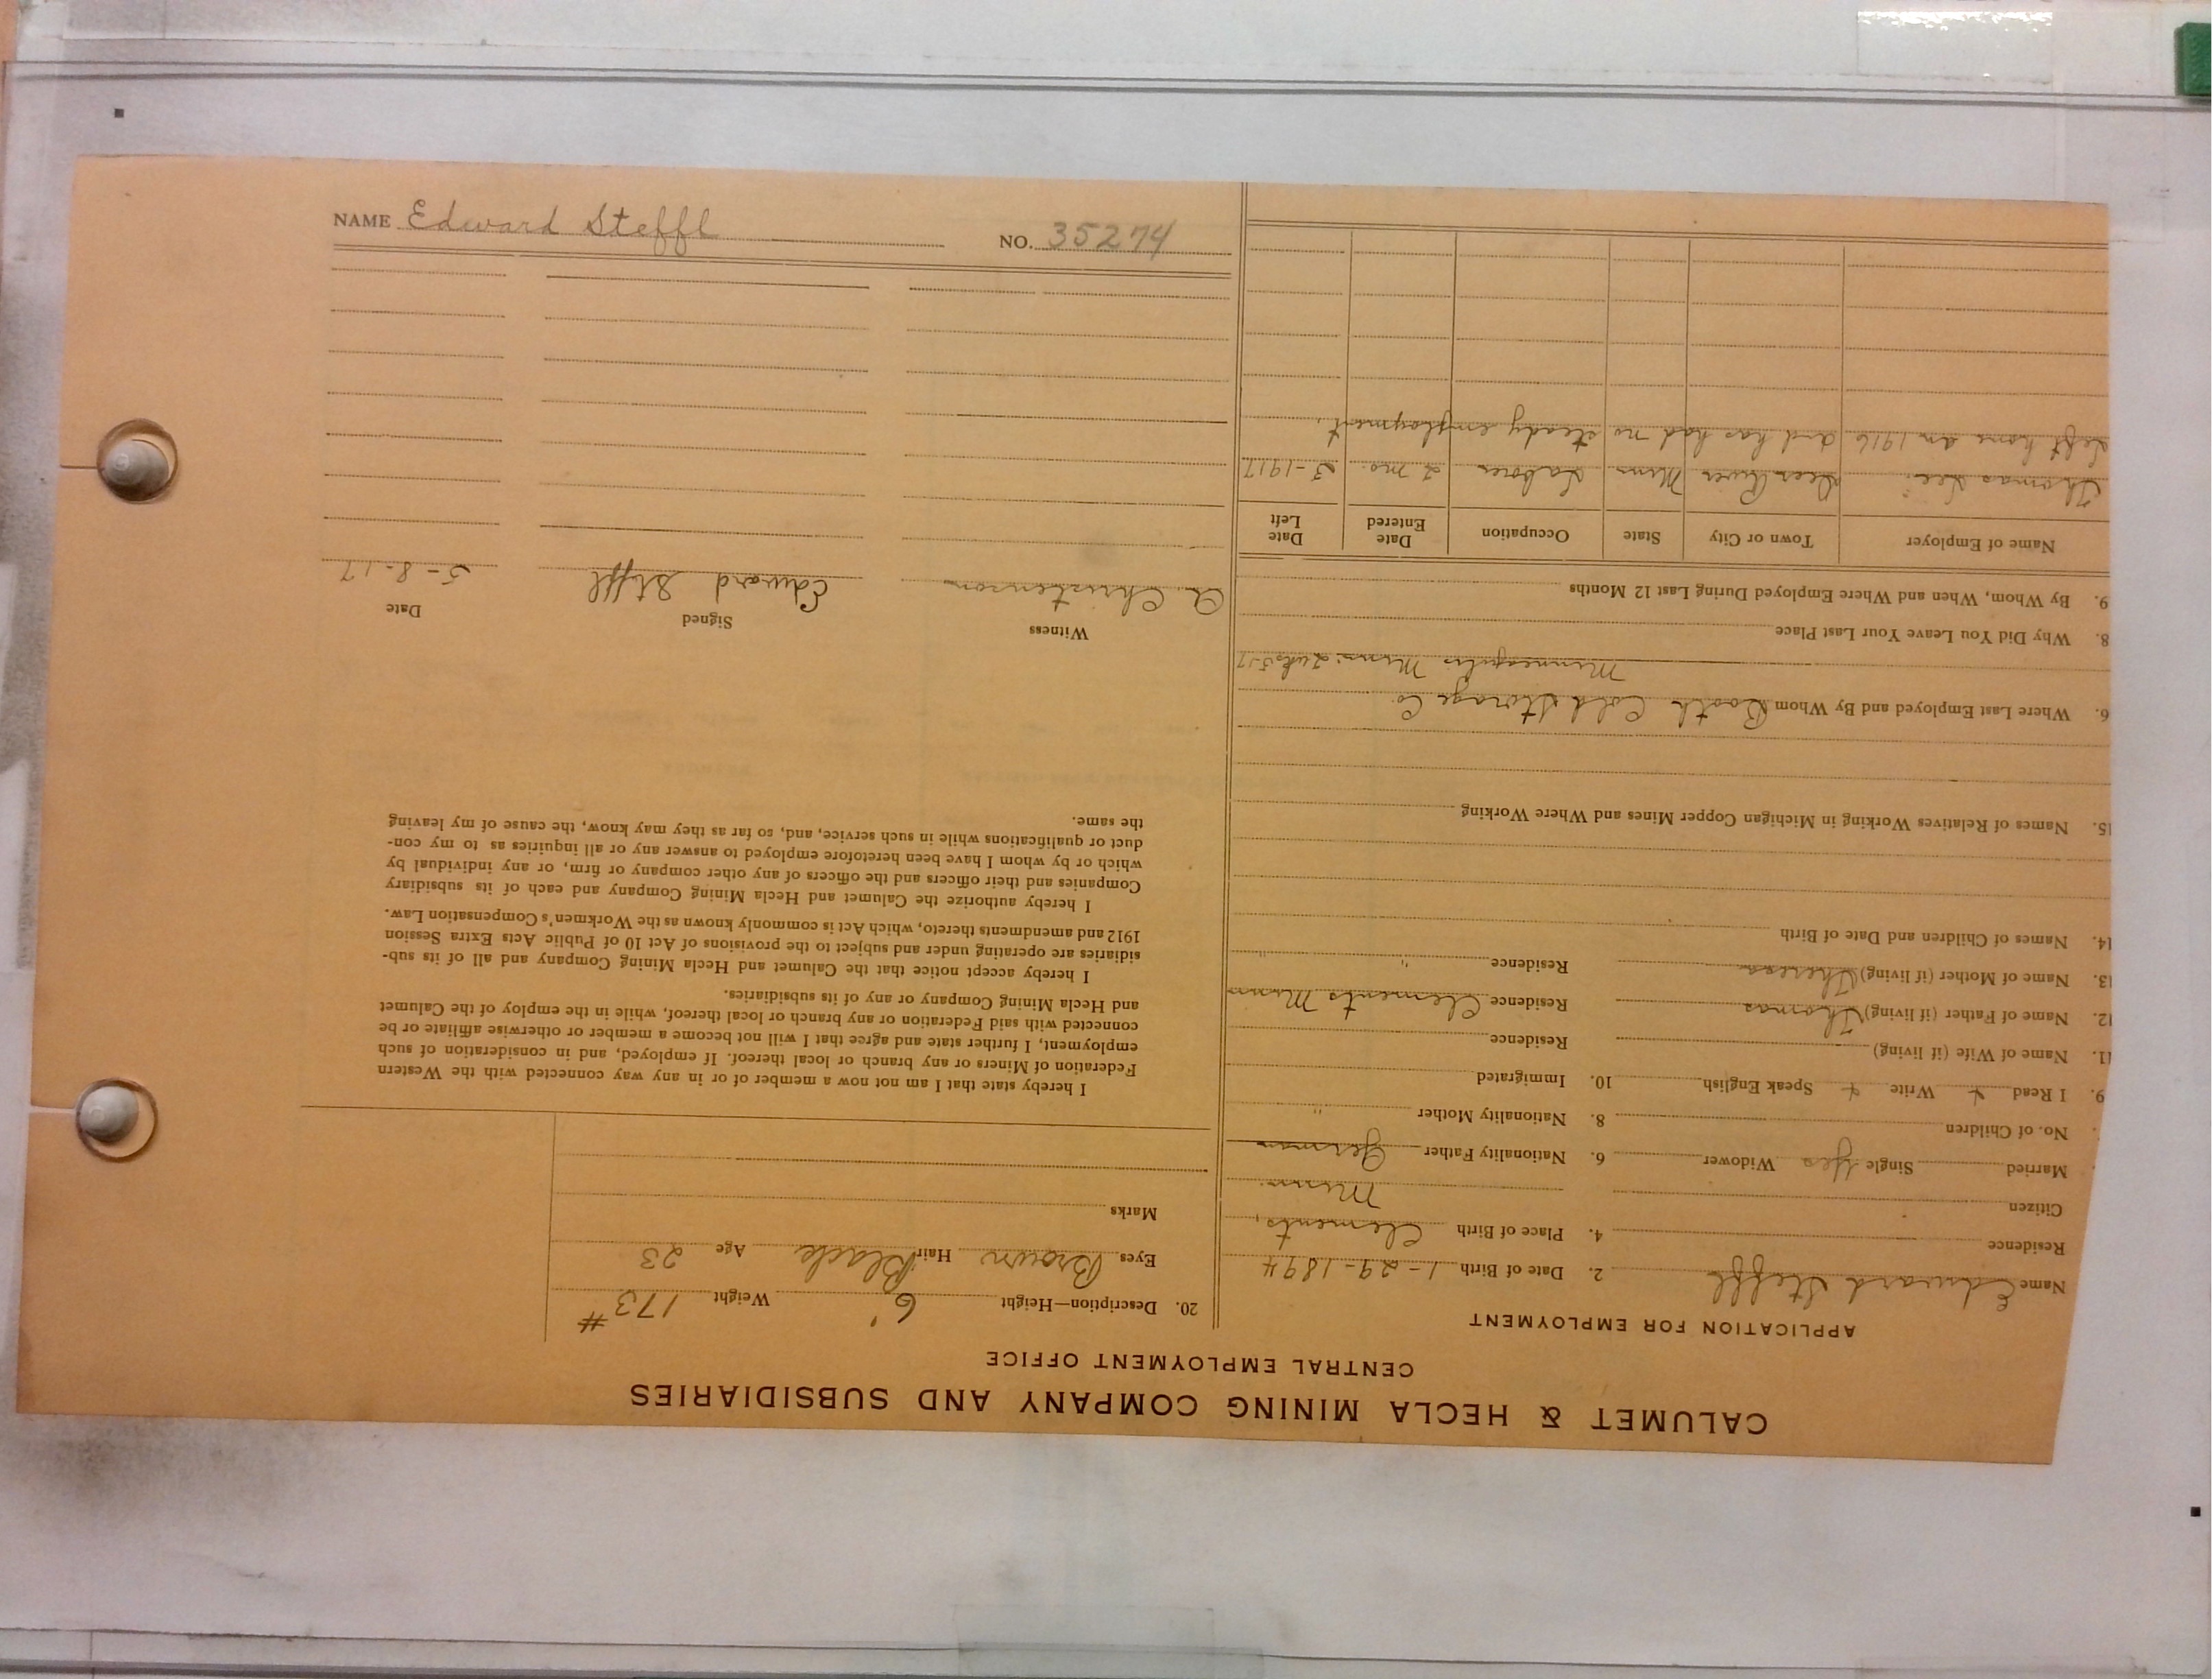 NAME Edward Steffl NO. 35274
CALUMET & HECLA MINING COMPANY AND SUBSIDIARIES
CENTRAL EMPLOYMENT OFFICE
APPLICATION FOR EMPLOYMENT
Name Edward Steffl 2. Date of Birth 1-29-1894
Residence 4. Place of Birth Clements,
Citizen Minn
Married Single Yes Widower 6. Nationality Father German
No. of Children 8. Nationality Mother "
9. I Read Write Speak English 10. Immigrated
11. Name of Wife (if living) Residence
12. Name of Father (if living) Thomas Residence Clements Minn
13. Name of Mother (if living) Theresa Residence " "
14. Names of Children and Date of Birth
15. Names of Relatives Working in Michigan Copper Mines and Where Working
6. Where Last Employed and By Whom Booth Cold Storage Co.
Minneapolis Minn.
8. Why Did You Leave Your Last Place
9. By Whom, When and Where Employed During Last 12 Months
Name of Employer Town or City State Occupation Date Entered Date Left
Thomas Lee Deer River Minn Laborer 2 mo. 3-1917
Left home in 1916 and has had no steady employment.
20. Description—Height 6' Weight 173#
Eyes Brown Hair Black Age 23
Marks
I hereby state that I am not now a member of or in any way connected with the Western
Federation of Miners or any branch or local thereof. If employed, and in consideration of such
employment, I further state and agree that I will not become a member or otherwise affiliate or be
connected with said Federation or any branch or local thereof, while in the employ of the Calumet
and Hecla Mining Company or any of its subsidiaries.
I hereby accept notice that the Calumet and Hecla Mining Company and all of its sub-
sidiaries are operating under and subject to the provisions of Act 10 of Public Acts Extra Session
1912 and amendments thereto, which Act is commonly known as the Workmen's Compensation Law.
I hereby authorize the Calumet and Hecla Mining Company and each of its subsidiary
Companies and their officers and the officers of any other company or firm, or any individual by
which or by whom I have been heretofore employed to answer any or all inquiries as to my con-
duct or qualifications while in such service, and, so far as they may know, the cause of my leaving
the same.
Witness Signed Date
A. Christenson Edward Steffl 5-8-17